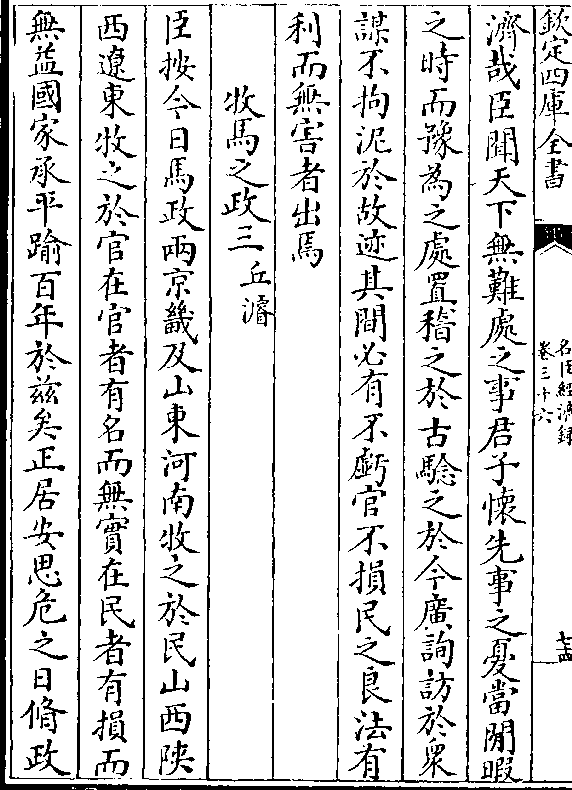 欽定四庫全書
名臣經濟録
卷三十六
七十四
濟哉臣聞天下無難處之事君子懷先事之憂當閒暇
之時而豫為之處置稽之於古驗之於今廣詢訪於衆
謀不拘泥於故迹其間必有不虧官不損民之良法有
利而無害者出焉
牧馬之政三 丘濬
臣按今日馬政兩京畿及山東河南牧之於民山西陜
西遼東牧之於官在官者有名而無實在民者有損而
無益國家承平踰百年於兹矣正居安思危之日脩政